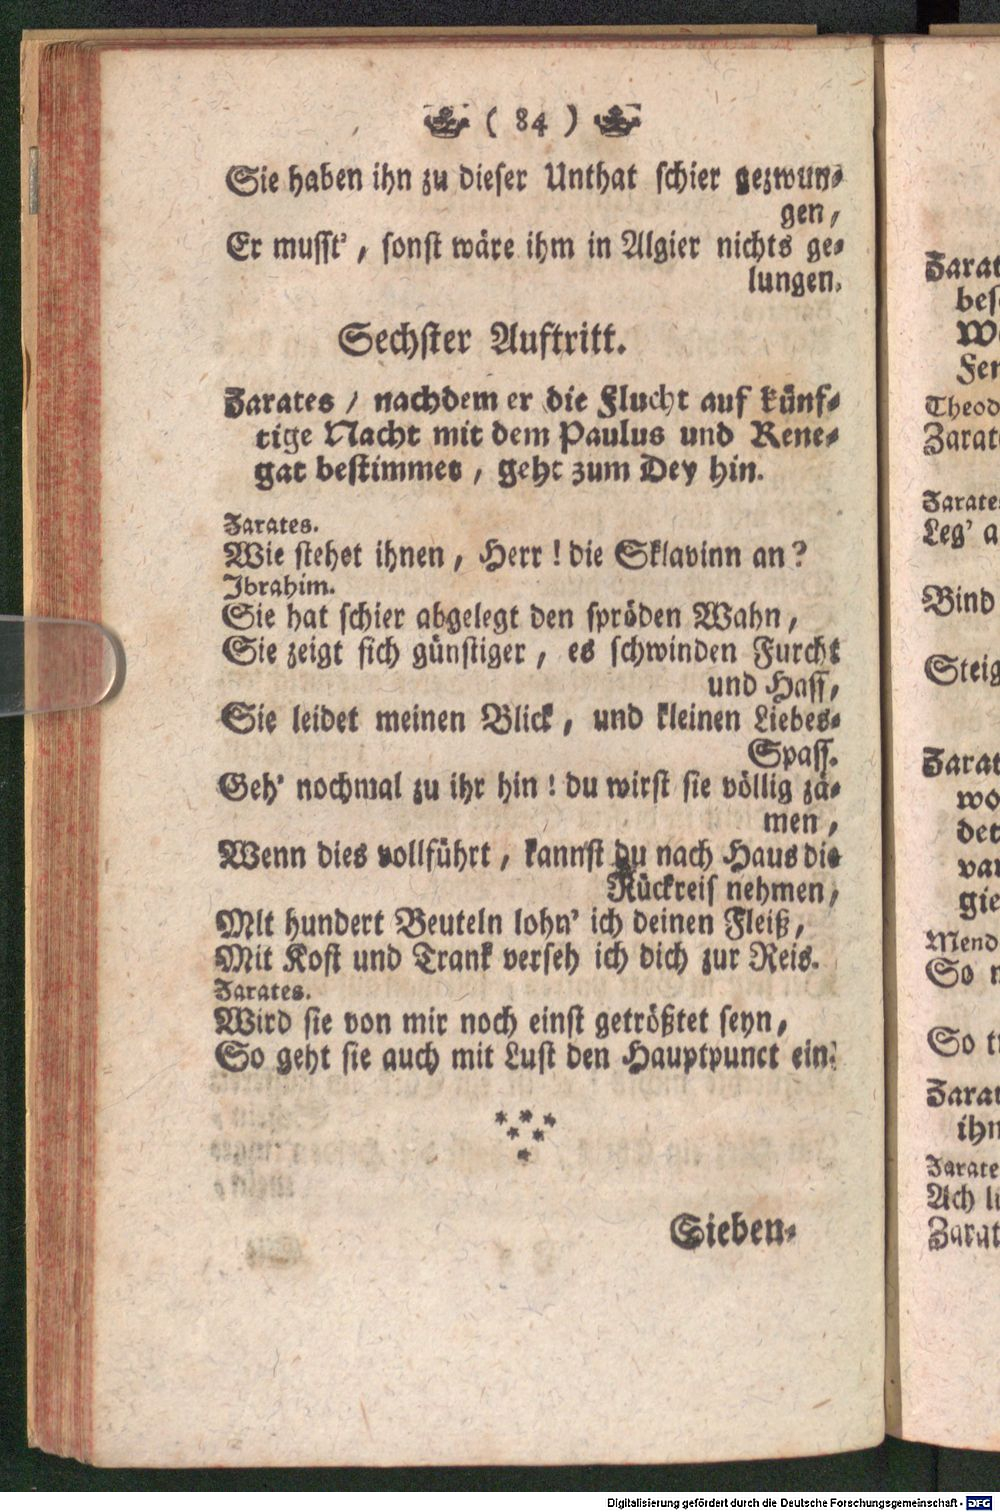 ( 84 )
Sie haben ihn zu dieser Unthat schier gezwun-
gen,
Er musst', sonst wäre ihm in Algier nichts ge-
lungen.
Sechster Auftritt.
Zarates / nachdem er die Flucht auf künf-
tige Nacht mit dem Paulus und Rene-
gat bestimmet, geht zum Dey hin.
Zarates.
Wie stehet ihnen, Herr! die Sklavinn an?
Ibrahim.
Sie hat schier abgelegt den spröden Wahn,
Sie zeigt sich günstiger, es schwinden Furcht
und Hass,
Sie leidet meinen Blick, und kleinen Liebes-
Spass.
Geh' nochmal zu ihr hin! du wirst sie völlig zä-
men,
Wenn dies vollführt, kannst du nach Haus die
Rückreis nehmen,
Mit hundert Beuteln lohn' ich deinen Fleiß,
Mit Kost und Trank verseh ich dich zur Reis.
Zarates.
Wird sie von mir noch einst getrößtet seyn,
So geht sie auch mit Lust den Hauptpunct ein.
Sieben-
Zarat
bes
Fer
Theod
Zarat
Zarates
Leg' a
Bind
Steig
Zarat
wo
det
var
gie
Mend
So n
So tr
Zarat
ihn
Zarate
Ach li
Zarat
Digitalisierung gefördert durch die Deutsche Forschungsgemeinschaft - DFG